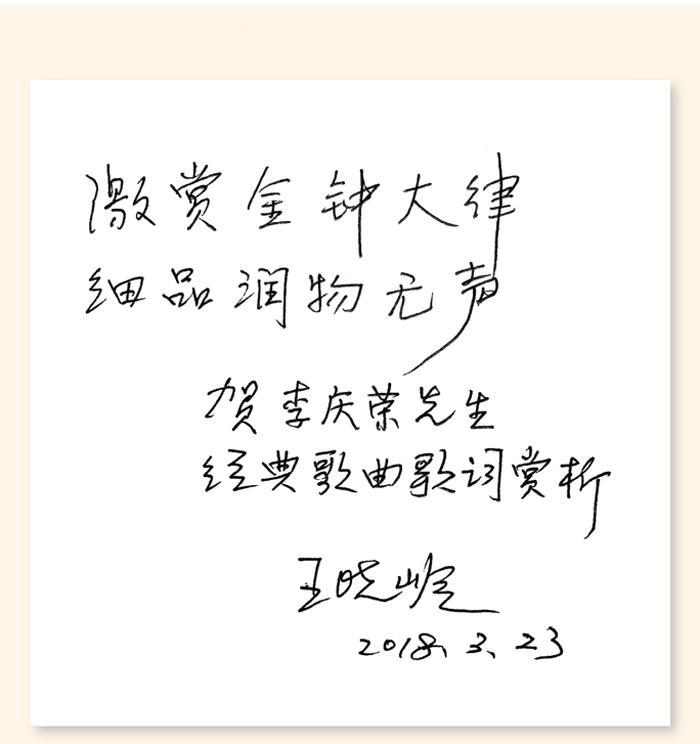 激赏金钟大律
细品润物无声
贺李庆荣先生
经典歌曲歌词赏析
王晓岭
2018.3.23